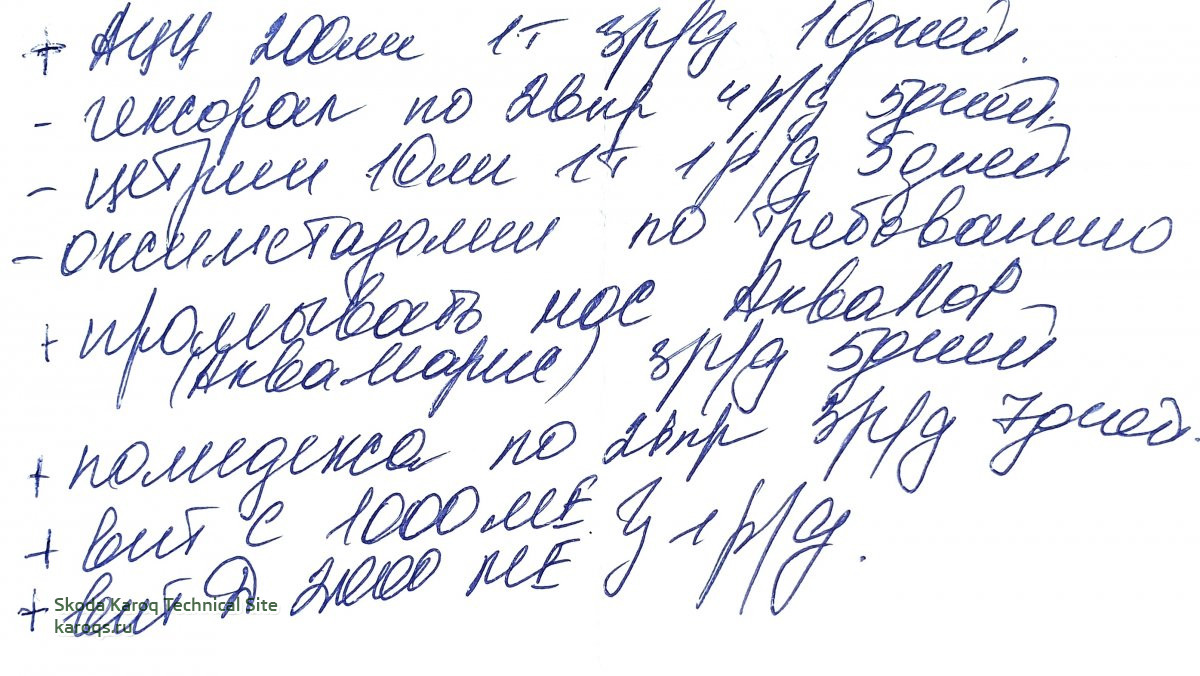 + АЦЦ 200мг 1т 3р/д 10дней.
- гексорал по 2впр 4р/д 5дней.
- цетрин 10мг 1т 1р/д 5дней
- оксиметазолин по требованию
+ промывать нос АкваЛор
(АкваМарис) 3р/д 5дней
+ полидекса по 2впр 3р/д 7дней.
+ вит С 1000 МЕ } 1р/д.
+ вит Д 2000 МЕ
Skoda Karoq Technical Site
karoqs.ru